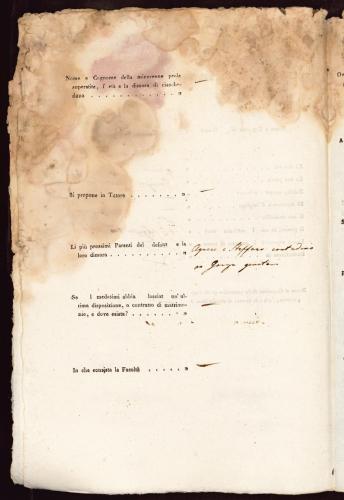 Nome e Cognome della minorenne prole
superstite, l' età e la dimora di ciasche-
duno . . . . . . . . . . . . . . . »
Si propone in Tutore . . . . . . . . . »
Li più prossimi Parenti del defunt e la
loro dimora . . . . . . . . . . . . »
e Steffano
Se l medesimi abbia lasciat un' ul-
tima disposizione, o contratto di matrimo-
nio, e dove esista? . . . . . . . . . »
In che consista la Facoltà . . . . . . »